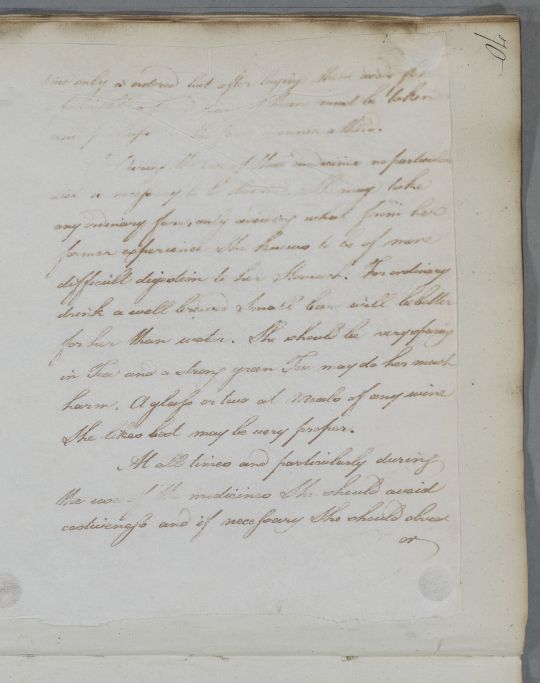 70
only is ordered but after laying them aside
must be taken
manner a third.
During the use of these medicines no particular
diet is necessary to be observed. She may take
any ordinary fare, only avoiding what from her
former experience She knows to be of more
difficult digestion to her Stomach. For ordinary
drink a well brewed Small beer will be better
for her than water. She should be very sparing
in Tea and a strong green Tea may do her much
harm. A glass or two at Meals of any wine
She likes best may be very proper.
At all times and particularly during
the use of the medicines She should avoid
costiveness and if necessary She should
or